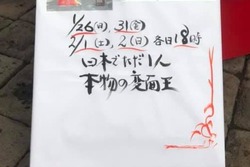 1/26(日)、31(金)
2/1(土)、2(日)各日18時
日本でただ1人
本物の変面王